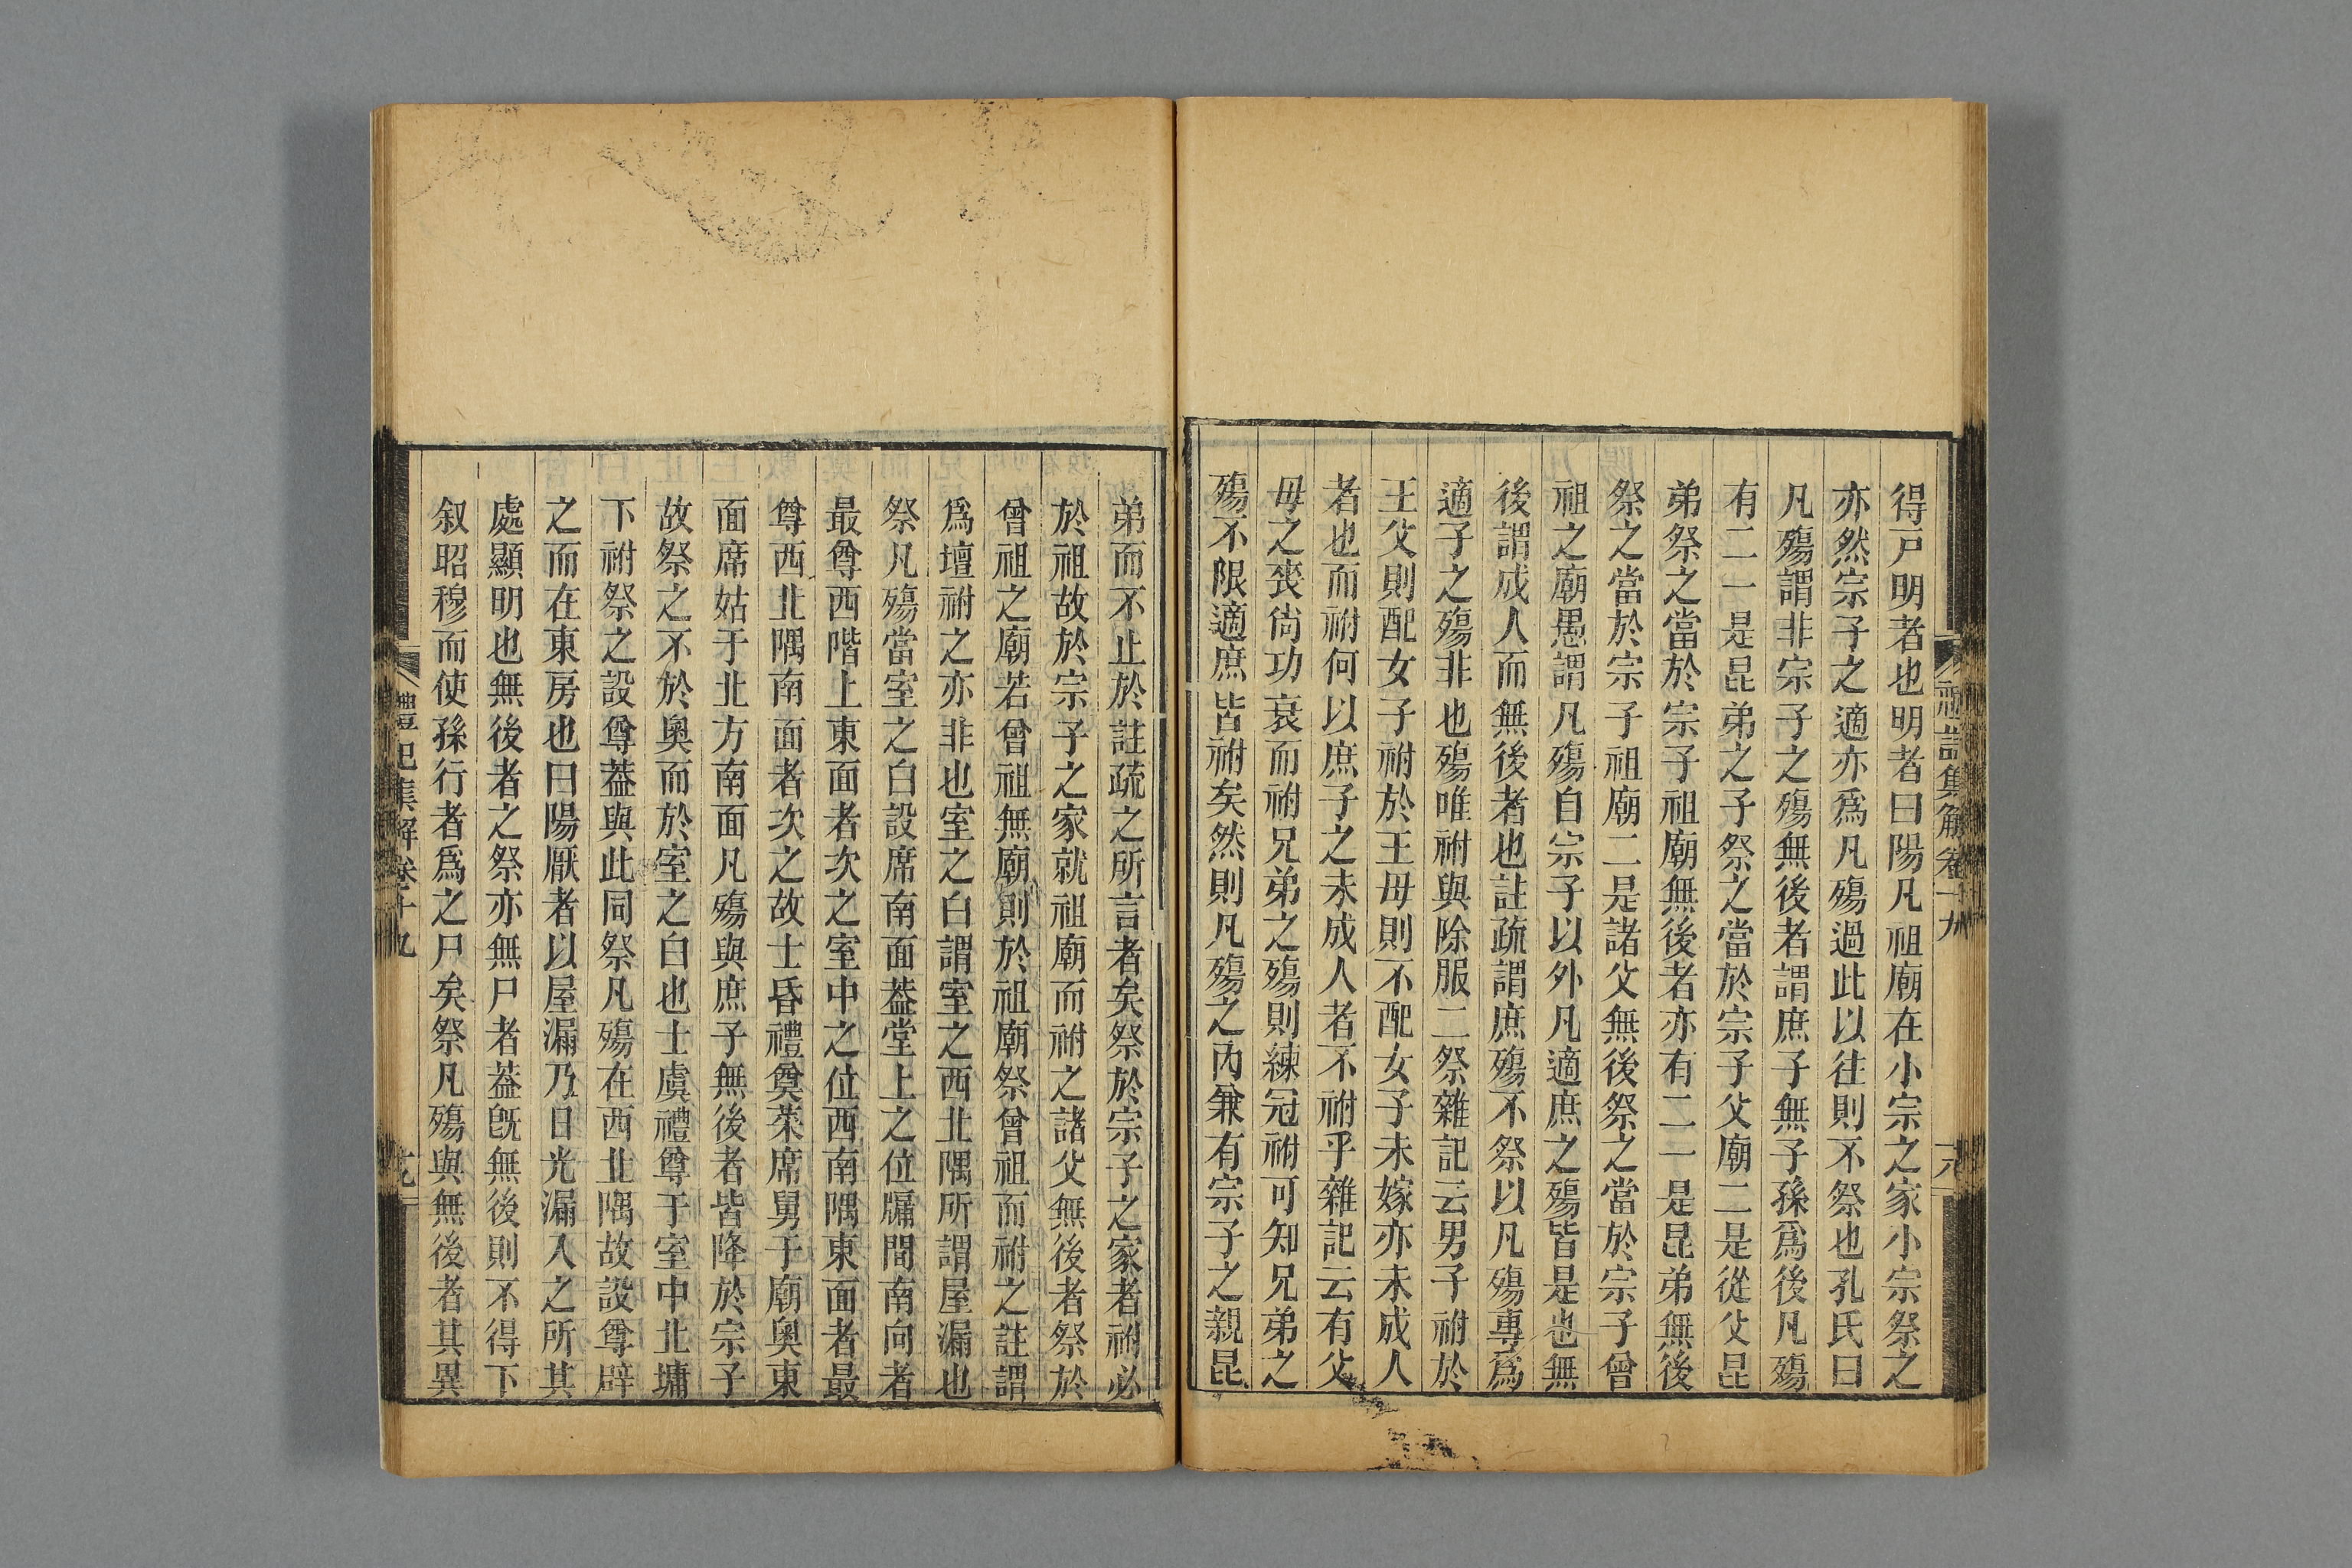 得戸明者也明者曰陽凡祖廟在小宗之家小宗祭之
亦然宗子之適亦爲凡殤過此以往則不祭也孔氏曰
凡殤謂非宗子之殤無後者謂庶子無子孫爲後凡殤
有二一是昆弟之子祭之當於宗子父廟二是從父昆
弟祭之當於宗子祖廟無後者亦有二一是昆弟無後
祭之當於宗子祖廟二是諸父無後祭之當於宗子曾
祖之廟愚謂凡殤自宗子以外凡適庶之殤皆是也無
後謂成人而無後者也註疏謂庶殤不祭以凡殤專爲
適子之殤非也殤唯祔與除服二祭雜記云男子祔於
王父則配女子祔於王母則不配女子未嫁亦未成人
者也而祔何以庶子之未成人者不祔乎雜記云有父
母之喪尙功衰而祔兄弟之殤則練冠祔可知兄弟之
殤不限適庶皆祔矣然則凡殤之內兼有宗子之親昆
弟而不止於註疏之所言者矣祭於宗子之家者祔必
於祖故於宗子之家就祖廟而祔之諸父無後者祭於
曾祖之廟若曾祖無廟則於祖廟祭曾祖而祔之註謂
爲壇祔之亦非也室之白謂室之西北隅所謂屋漏也
祭凡殤當室之白設席南面葢堂上之位牖間南向者
最尊西階上東面者次之室中之位西南隅東面者最
尊西北隅南面者次之故士昏禮奠菜席舅于廟奧東
面席姑于北方南面凡殤與庶子無後者皆降於宗子
故祭之不於奧而於室之白也士虞禮尊于室中北墉
下祔祭之設尊葢與此同祭凡殤在西北隅故設尊辟
之而在東房也曰陽厭者以屋漏乃日光漏入之所其
處顯明也無後者之祭亦無尸者葢旣無後則不得下
叙昭穆而使孫行者爲之尸矣祭凡殤與無後者其異
禮記集解卷十九